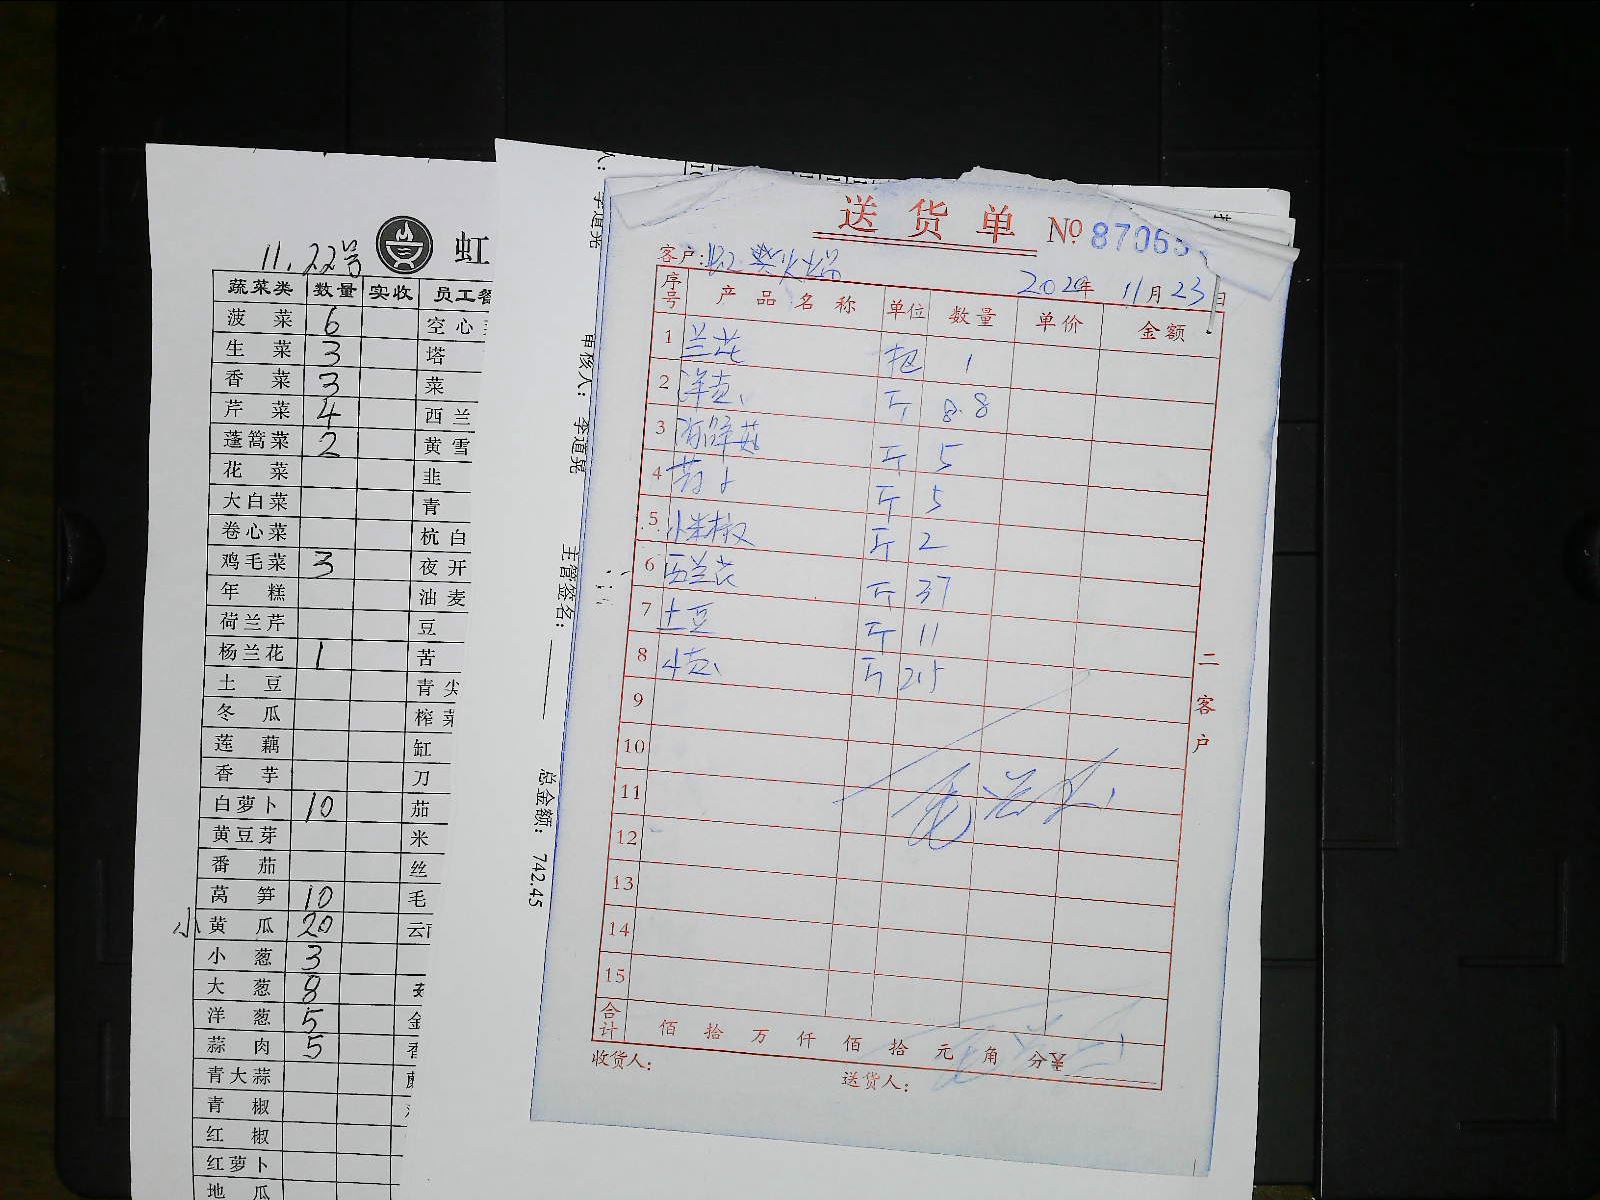 11.22号
虹
蔬菜类 数量 实收 员工餐
菠菜 6 空心
生菜 3 塔
香菜 3 菜
芹菜 4 西兰
蓬蒿菜 2 黄雪
花菜 韭
大白菜 青
卷心菜 杭白
鸡毛菜 3 夜开
年糕 油麦
荷兰芹 豆
杨兰花 1 苦
土豆 青尖
冬瓜 榨菜
莲藕 缸
香芋 刀
白萝卜 10 茄
黄豆芽 米
番茄 丝
莴笋 10 毛
小 黄瓜 20 云南
小葱 3
大葱 8
洋葱 5 金
蒜肉 5 香
青大蒜
青椒
红椒
红萝卜
地瓜
李道晃
审核人: 李道晃
主管签名:
总金额: 742.45
送货单 №87065
客户: 虹柴火馅 2024年 11月23日
序号 产品名称 单位 数量 单价 金额
1 兰花 把 1
2 洋葱 斤 8.8
3 斤 5
4 斤 5
5 小米椒 斤 2
6 西兰花 斤 37
7 土豆 斤 11
8 小葱 斤 2.5
9
10
11
12
13
14
15
合计 佰 拾 万 仟 佰 拾 元 角 分 ¥
收货人:
送货人:
二客户